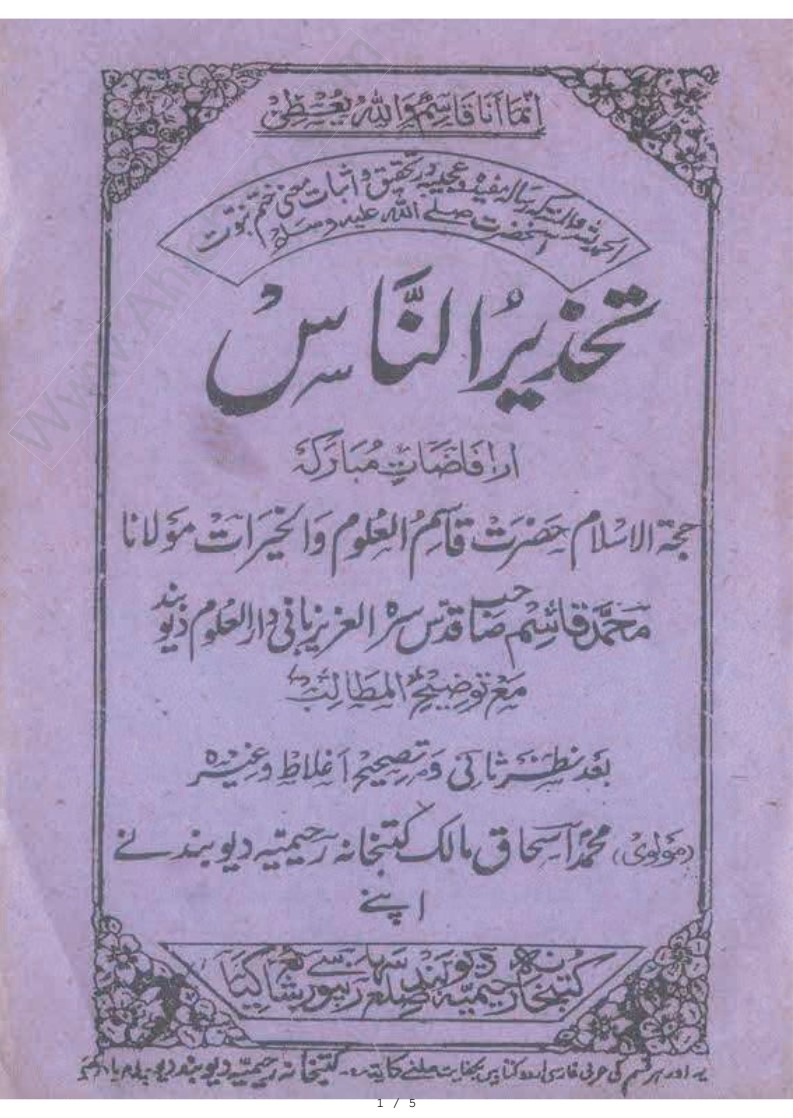 انما انا قاسم والله يعطي
الحمد للہ والمنت کہ رسالہ مفیدہ و عجیبہ در تحقیق و اثبات معنی ختم نبوت
آنحضرت صلے اللہ علیہ وسلم
تحذیرُ النَّاسْ
از افاضات مُبارکہ
حجۃ الاسلام حضرت قاسم العلوم والخیرات مولانا
محمد قاسم صاحب قدس سرہ العزیز بانی دارالعلوم دیوبند
مع توضیح المطالب
بعد نظر ثانی و تصحیح اغلاط وغیرہ
(مولوی) محمد اسحاق مالک کتبخانہ رحیمیہ دیوبند نے
اپنے
کتبخانہ رحیمیہ دیوبند ضلع سہارنپور سے شائع کیا
یہ اور ہر قسم کی عربی فارسی اردو کتابیں بکفایت ملنے کا پتہ۔ کتبخانہ رحیمیہ دیوبند
1 / 5